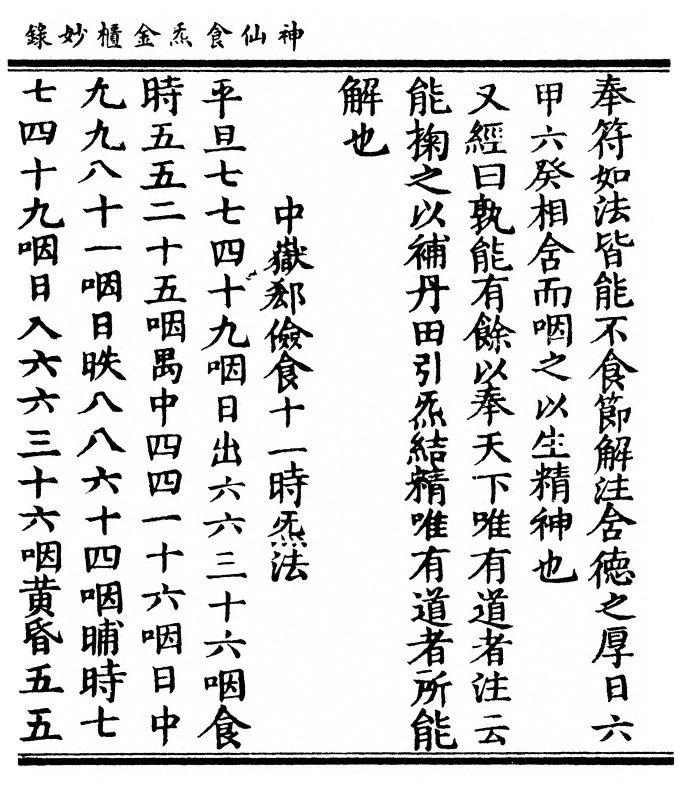 神仙食炁金櫃妙錄
奉符如法皆能不食節解注含德之厚日六
甲六癸相含而咽之以生精神也
又經曰孰能有餘以奉天下唯有道者注云
能掬之以補丹田引炁結精唯有道者所能
解也
中嶽郄儉食十一時炁法
平旦七七四十九咽日出六六三十六咽食
時五五二十五咽禺中四四一十六咽日中
九九八十一咽日昳八八六十四咽晡時七
七四十九咽日入六六三十六咽黃昏五五